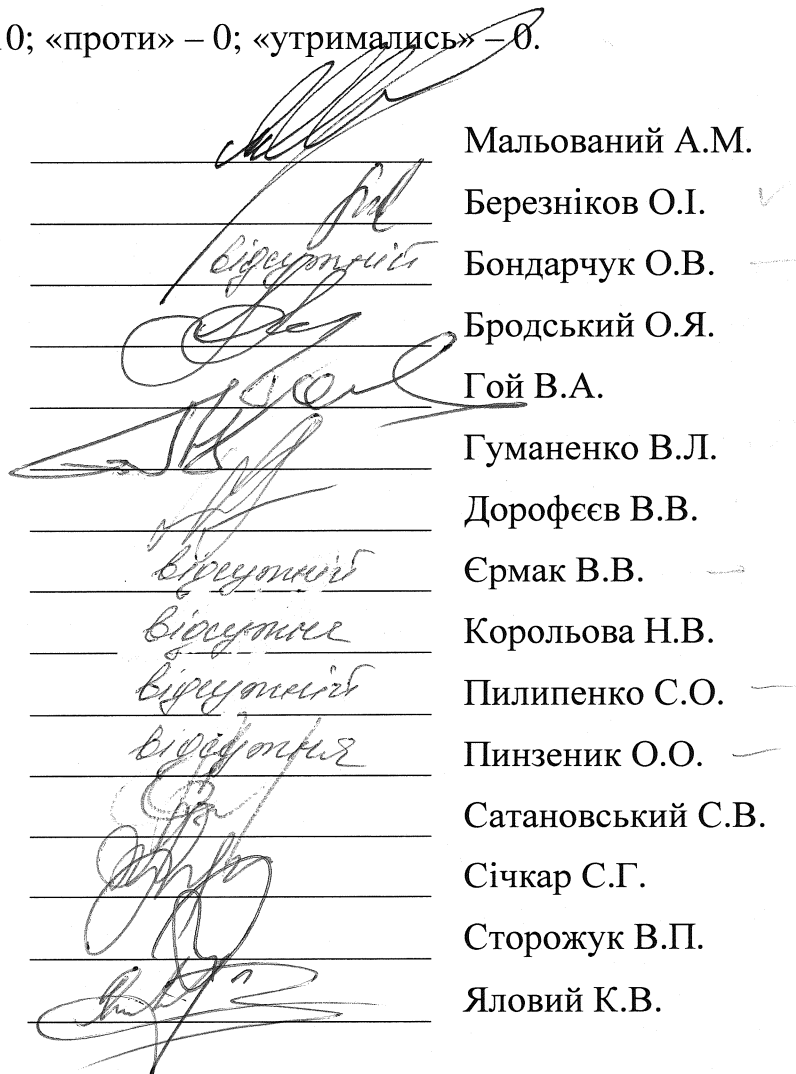 0; «проти» – 0; «утримались» – 0.
Мальований А.М.
Березніков О.І.
відсутній Бондарчук О.В.
Бродський О.Я.
Гой В.А.
Гуманенко В.Л.
Дорофєєв В.В.
відсутній Єрмак В.В.
відсутня Корольова Н.В.
відсутній Пилипенко С.О.
відсутня Пинзеник О.О.
Сатановський С.В.
Січкар С.Г.
Сторожук В.П.
Яловий К.В.